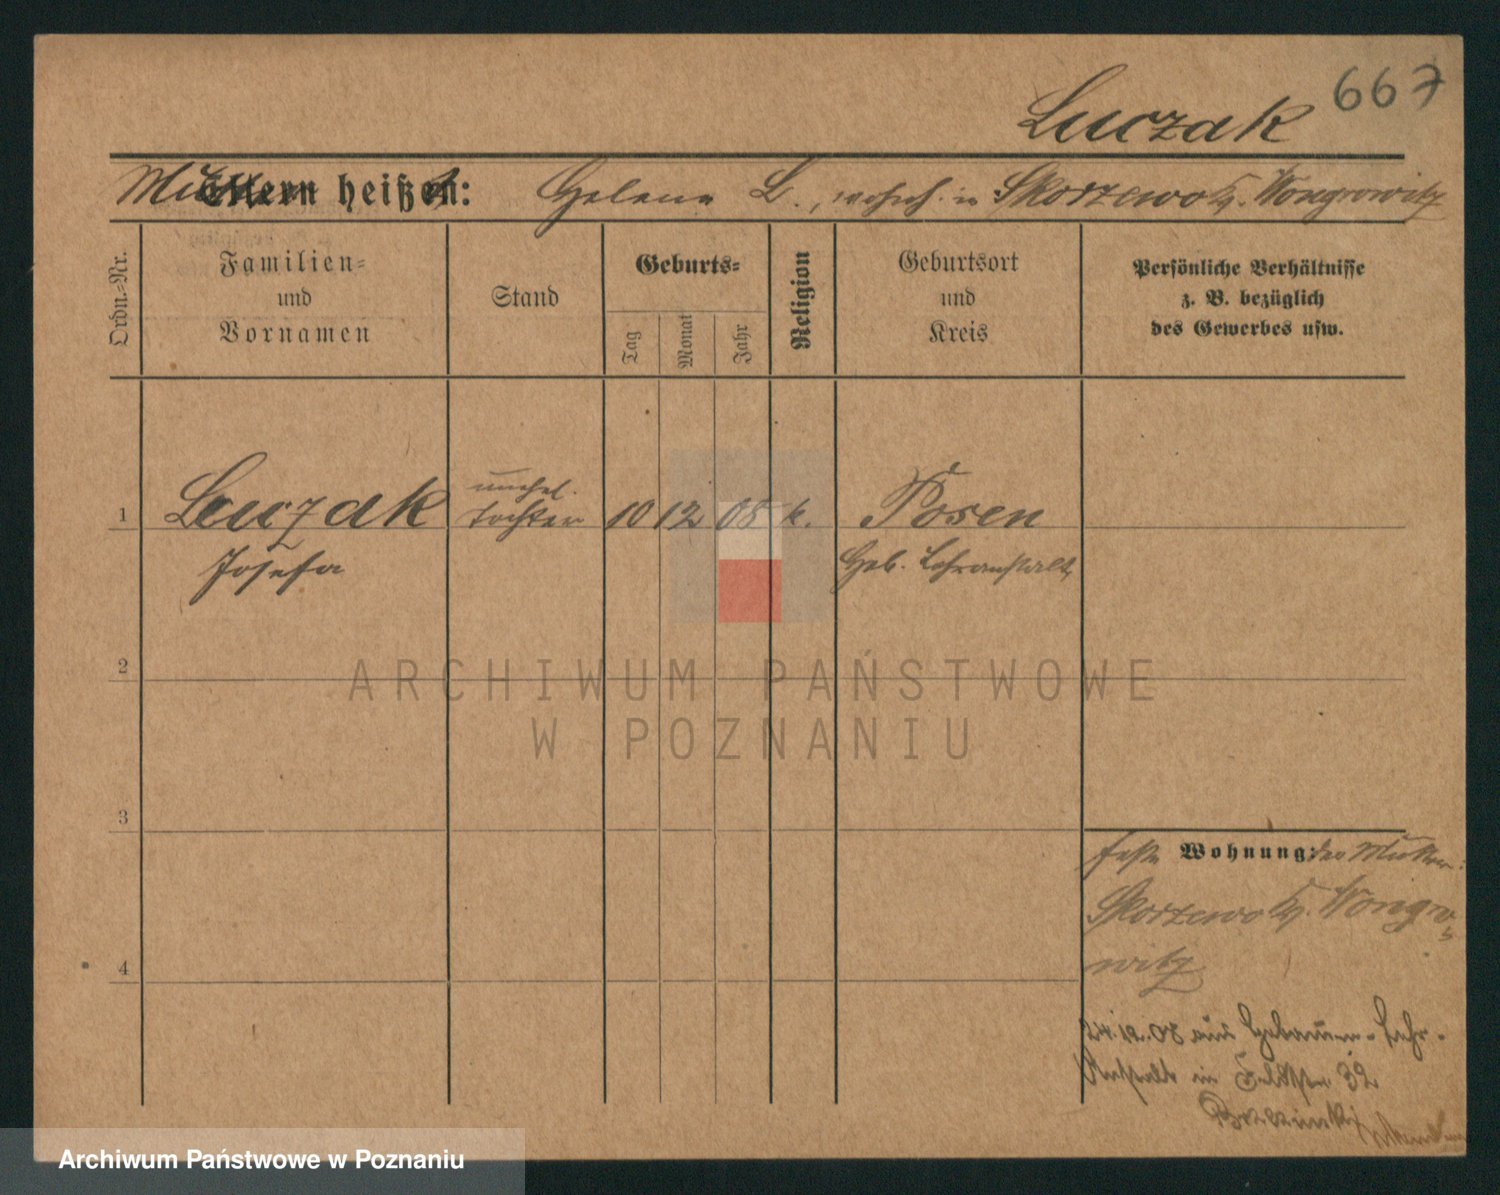 667
Luczak
Mutter heißt: Helene L., wohnh. in Skorzewo Kr. Wongrowitz
Ordn.-Nr.
Familien-
und
Vornamen
Stand
Geburts-
Tag
Monat
Jahr
Religion
Geburtsort
und
Kreis
Persönliche Verhältnisse
z. B. bezüglich
des Gewerbes usw.
unehel.
1 Luczak Tochter 10 12 08 k. Posen
Josefa Heb. Lehranstalt
2
3
feste Wohnung: der Mutter:
Skorzewo Kr. Wongro-
witz
4
24.12.08 aus Hebammen-Lehr-
Anstalt in Feldstr. 32
Brzezinski
ARCHIWUM PAŃSTWOWE
W POZNANIU
Archiwum Państwowe w Poznaniu